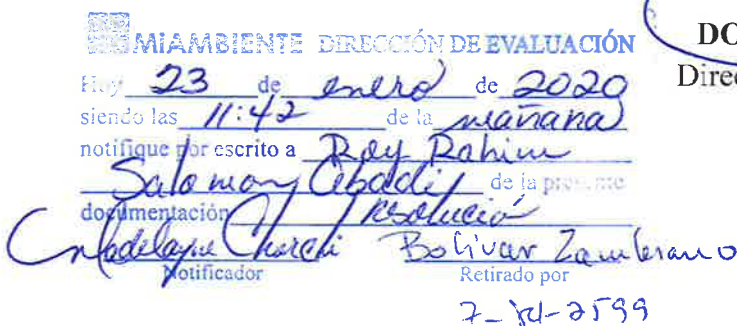 MiAMBIENTE DIRECCIÓN DE EVALUACIÓN
DO
Direc
Hoy 23 de enero de 2020
siendo las 11:42 de la mañana
notifique por escrito a Roy Rahim
Salomon de la presente
documentación Resolución
Bolivar Zambrano
Notificador Retirado por